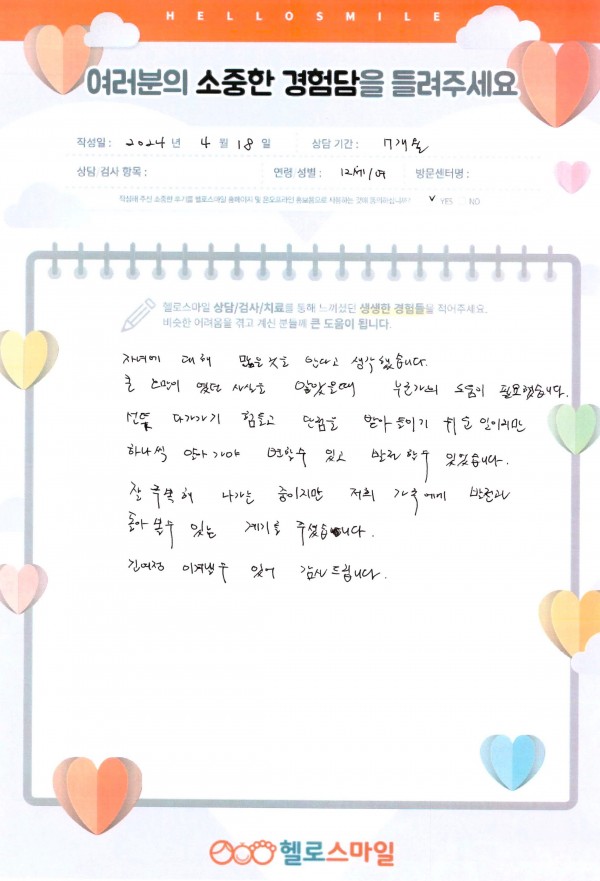 HELLOSMILE
여러분의 소중한 경험담을 들려주세요
작성일 : 2024 년 4 월 18 일 상담 기간 : 7개월
상담 검사 항목 : 연령 성별 : 12세/여 방문센터명 :
작성해 주신 소중한 후기를 헬로스마일 홈페이지 및 온오프라인 홍보물으로 사용하는 것에 동의하십니까? ✓ YES NO
헬로스마일 상담/검사/치료를 통해 느끼셨던 생생한 경험들을 적어주세요.
비슷한 어려움을 겪고 계신 분들께 큰 도움이 됩니다.
자녀에 대해 많을 것을 안다고 생각했습니다.
큰 오만이 였던 사실을 알았을때 누군가의 도움이 필요했습니다.
선뜻 다가가기 힘들고 단점을 받아 들이기 쉬운 일이지만
하나씩 알아가야 변할수 있고 발전할수 있었습니다.
잘 극복해 나가는 중이지만 저희 가족에게 발전과
돌아 볼수 있는 계기를 주셨습니다.
긴여정 이겨낼수 있어 감사드립니다.
헬로스마일